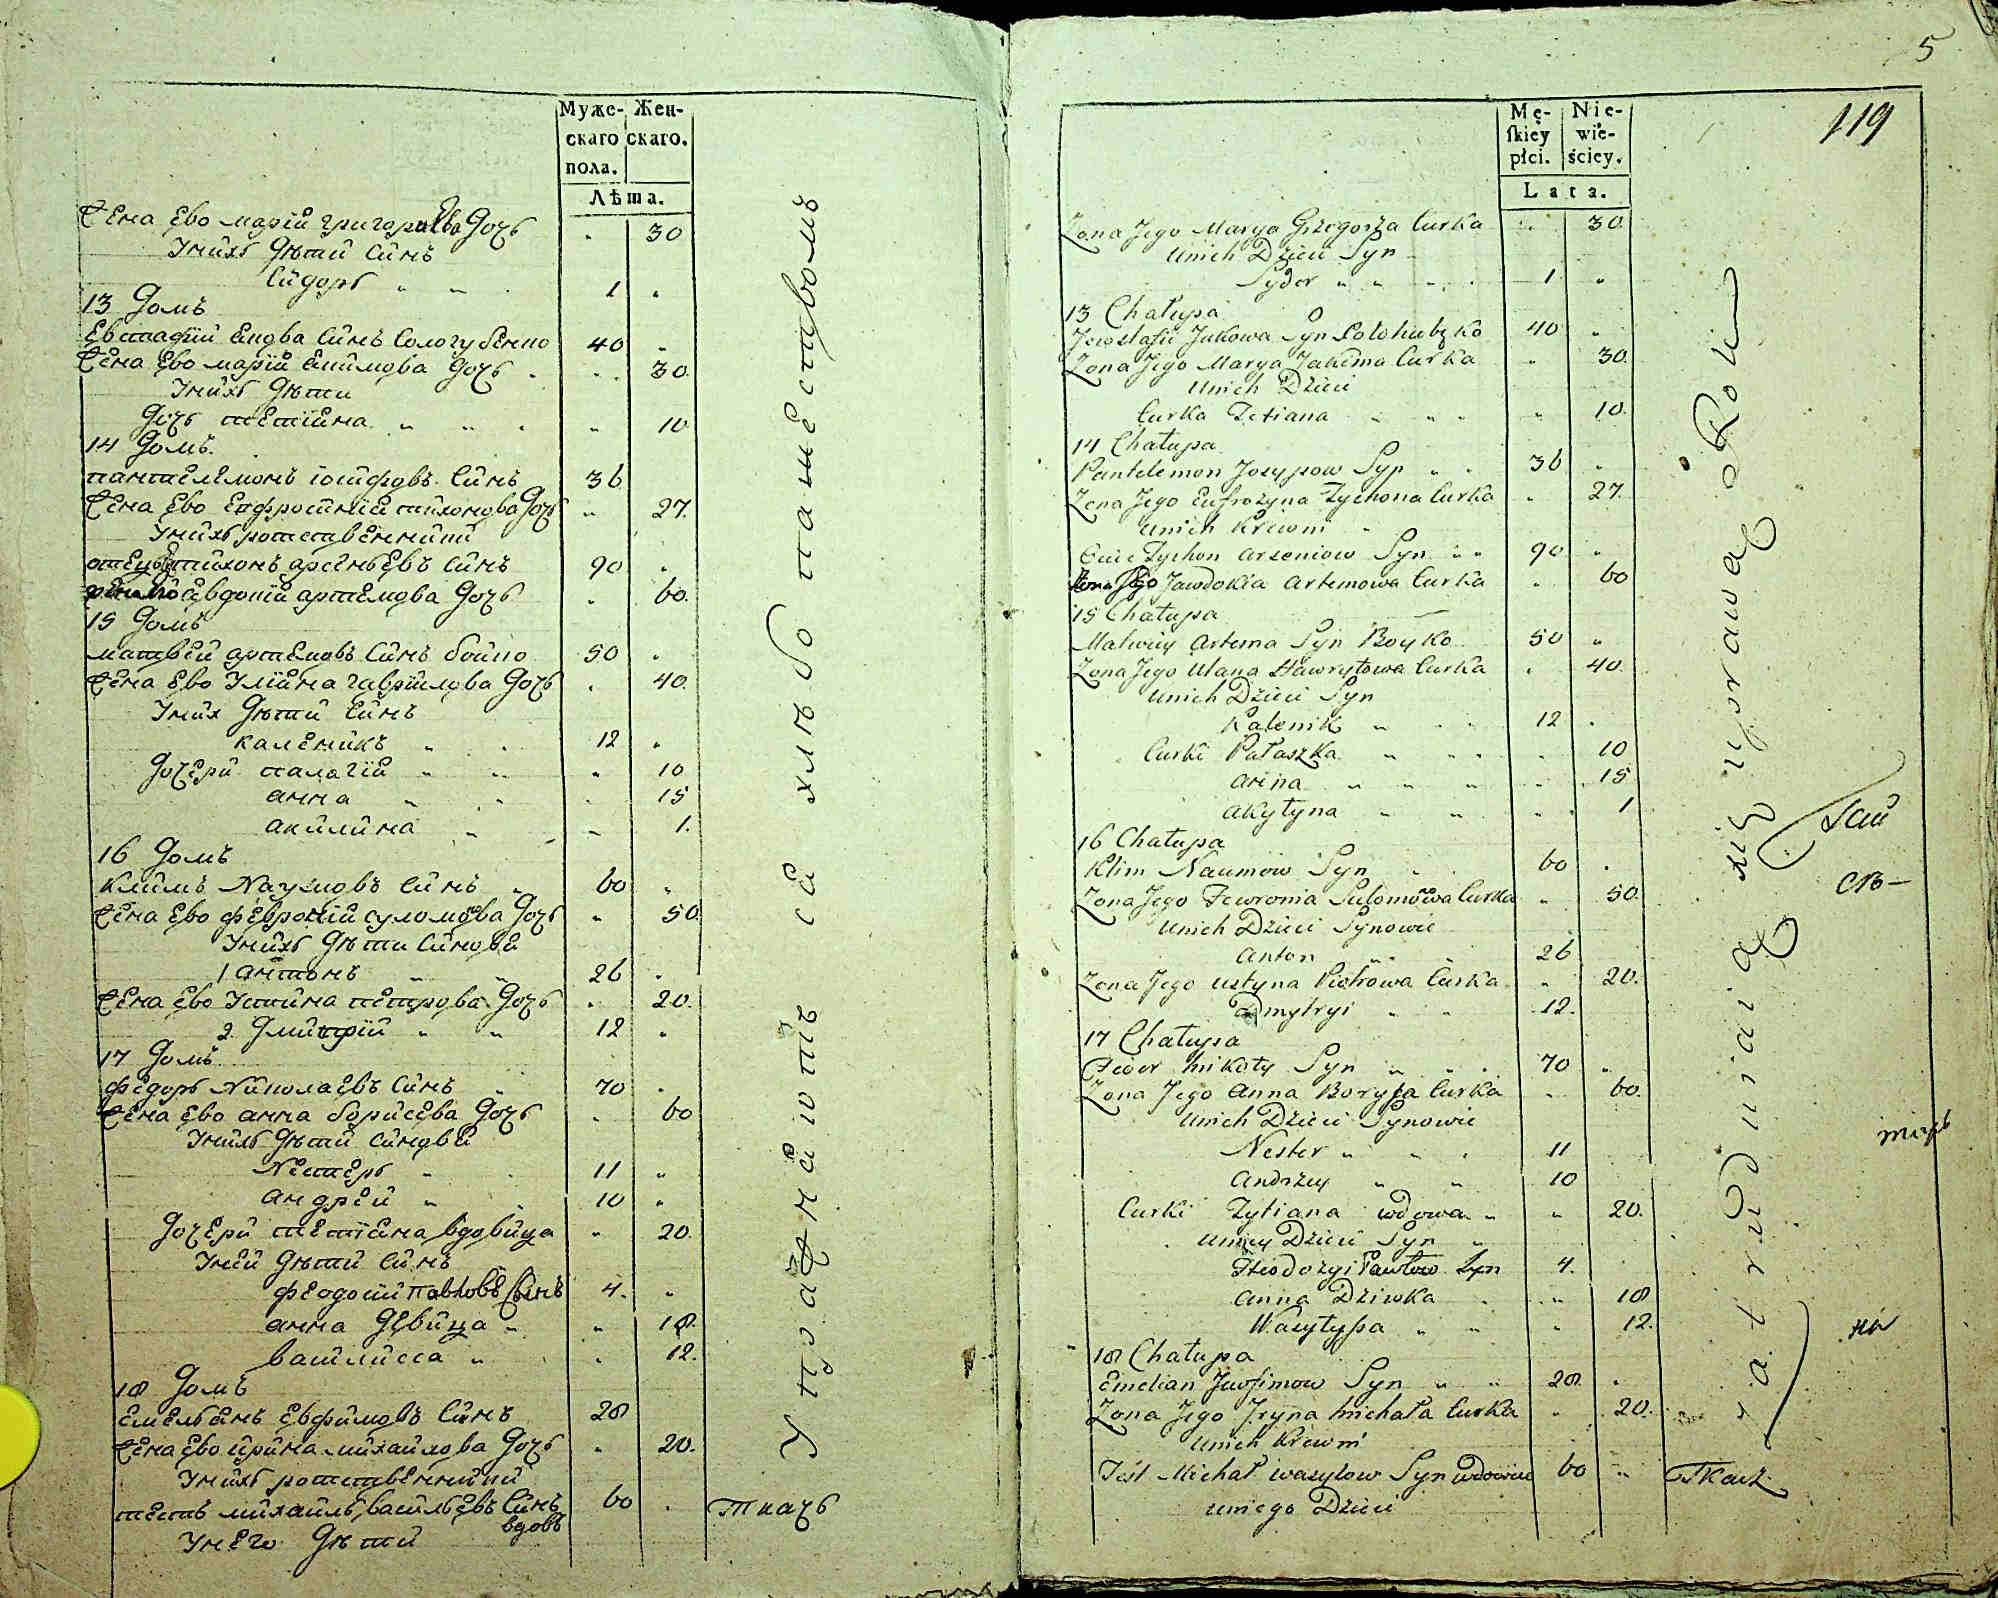 Муже-
скаго
пола.
Жен-
скаго.
Лѣта.
Жена Ево марїи григорнева Дочь " 30
Унихъ Дѣтѝ Синъ
Сидоръ " " 1 "
13 Домъ
Евстафий Яковa Синъ Сологубенко 40 "
Жена Ево марїи Якимова Дочь " 30.
Унихъ Дѣти
Дочь тетїяна " " " 10
14 Домъ.
пантелемонъ иосифовъ Синъ 36
Жена Ево Епфросинии тихонова Дочь " 27.
Унихъ родственники
отецъ тихонъ арсеньевъ Синъ 90 "
жена Его Евдокии артемова Дочь " 60.
15 Домъ
матвей артемовъ Синъ бойко 50 "
Жена Ево Улияна гаврилова Дочь " 40.
Уних Дѣти Синъ
каленикъ " " 12 "
Дочери палагїи " " " 10
анна " " " 15
акилина " " 1.
16 Домъ
Климъ Наумовъ Синъ " 60 "
Жена Ево февронии суломова Дочь " 50.
Унихъ Дѣти Синови
1 антонъ " " 26 "
Жена Ево Устина петрова Дочь " 20.
2 Дмитрий " " 12 "
17 Домъ
федоръ Николаевъ Синъ " 70 "
Жена Ево анна борисева Дочь " 60
Унихъ Дѣти Синови
Нестеръ " 11 "
андрей " " 10 "
Дочери тетїяна вдовица " 20.
Уней Дѣти Синъ
феодосий павловъ Синъ 4. "
анна Девица " " 18.
василисса " " 12.
18 Домъ
Емельянъ Евфимовъ Синъ 28
Жена Ево ирина михайлова Дочь " 20.
Унихъ родственники
тестъ михаилъ васильевъ Синъ 60 " ткачъ
вдовъ
Унего Дѣти
Упражняются хлѣбопашествомъ
5
119
Mę-
skiey
płci.
Nie-
wie-
ściey.
Lata.
Zona Jego Marya Grzegorza Curka " 30
Unich Dzieci Syn
Sydor " " " 1 "
13 Chałupa
Jewstafii Jakowa Syn Sołohubęko 40 "
Zona Jego Marya Jakima Curka " 30.
Unich Dzieci
Curka Tetiana " " " 10.
14 Chałupa
Pantelemon Josypow Syn " " 36 "
Zona Jego Eufrozyna Tychona Curka " 27.
Unich Krewni
Ociec Tychon Arseniow Syn " " 90 "
Zona Jego Jawdokia Artemowa Curka " 60
15 Chałupa
Matwiy Artema Syn Boyko 50 "
Zona Jego Ulana Hawryłowa Curka " 40.
Unich Dzieci Syn
Kalenik " " 12 "
Curki Pałaszka " " " 10
Anna " " " 15
Akylyna " " " 1
16 Chałupa
Klim Naumow Syn " 60 "
Zona Jego Fewronia Sulomowa Curka " 50.
Unich Dzieci Synowie
Anton " " 26
Zona Jego Ustyna Piotrowa Curka " 20.
Dmytryi " " 12.
17 Chałupa
Fedor Mikoły Syn " " " 70 "
Zona Jego Anna Borysa Curka " 60.
Unich Dzieci Synowie
Nester " " " 11
Andrzey " " 10
Curki Tytiana wdowa " " 20.
Uniey Dzieci Syn "
Theodozyi Pawłow Syn 4.
Anna Dziwka " " 18
Wasylysa " " " 12.
18 Chałupa
Emelian Jewfimow Syn " " 28. "
Zona Jego Jryna Michała Curka " 20.
Unich Krewni
Teść Michał Wasylow Syn wdowiec 60 " Tkacz
Uniego Dzieci
Zatrudniaią się uprawą Roli
Гай
съ-
на